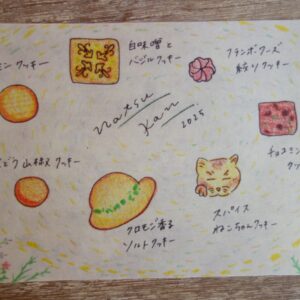 モン クッキー
白味噌と
バジルクッキー
フランボワーズ
絞りクッキー
natsu
Kan
2025
どう 山椒 クッキー
クロモジ香る
ソルトクッキー
スパイス
ねこちゃんクッキー
チョコミン
クッ